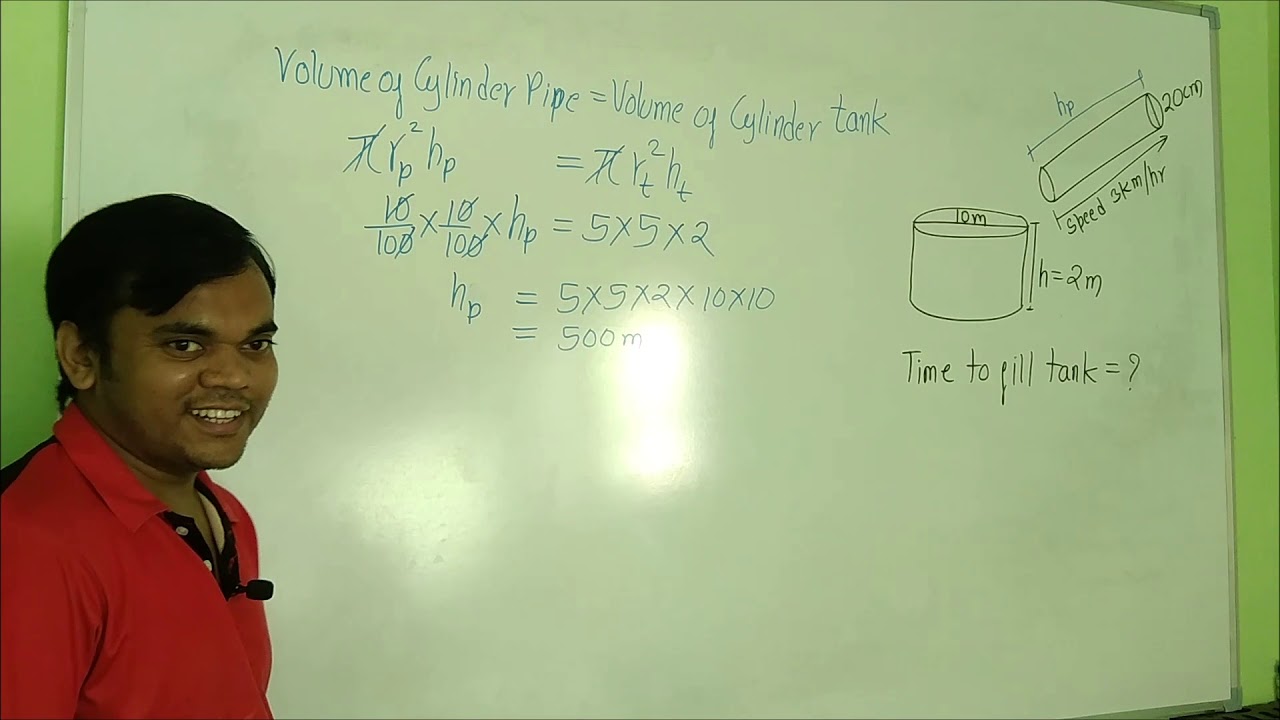 Volume of Cylinder Pipe = Volume of Cylinder tank
πr_p²h_p = πr_t²h_t
10/100 × 10/100 × h_p = 5×5×2
h_p = 5×5×2×10×10
= 500m
h_p
20cm
speed 3km/hr
10m
h=2m
Time to fill tank = ?